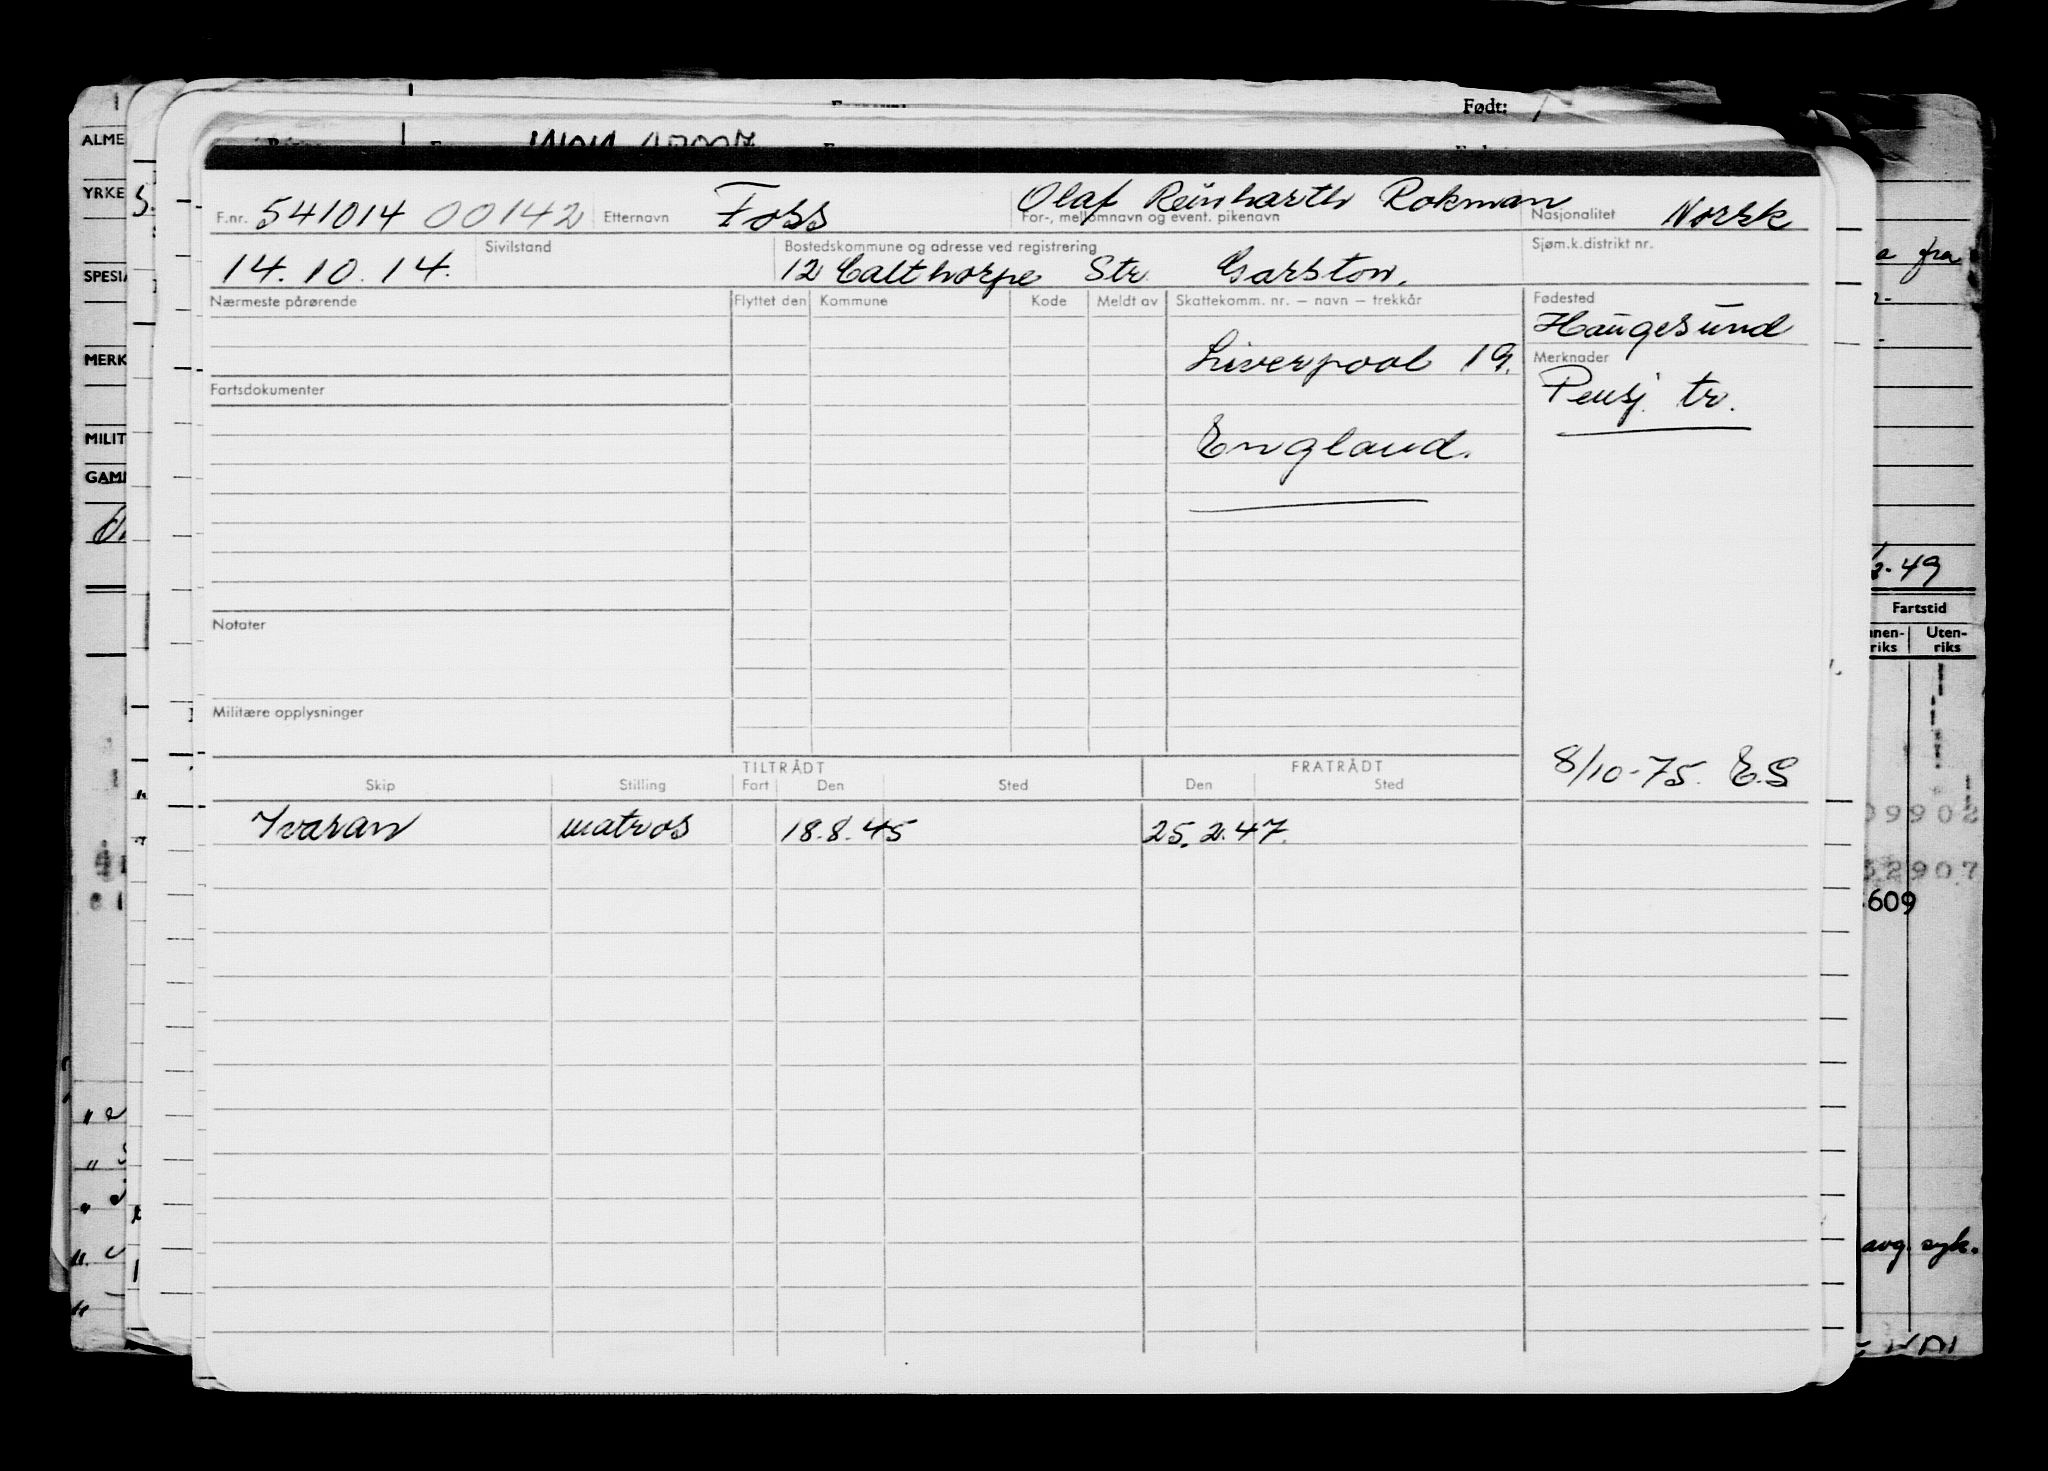 Født:
ALME
YRKE
SPESIA
MERK
MILIT
GAMM
Fartstid
Uten-
riks
riks
-49
fra
09902
52907
609
avg. syk.
Olaf Reinharth Rokman
F.nr. 541014 00142 Etternavn Foss For-, mellomnavn og event. pikenavn Nasjonalitet Norsk
Sivilstand Bostedskommune og adresse ved registrering Sjøm.k.distrikt nr.
14.10.14. 12 Calthorpe Str. Garston.
Nærmeste pårørende Flyttet den Kommune Kode Meldt av Skattekomm. nr. – navn – trekkår Fødested
Haugesund
Liverpool 19. Merknader
Fartsdokumenter Pensj. tr.
England.
Notater
Militære opplysninger
8/10-75. E.S
TILTRÅDT FRATRÅDT
Skip Stilling Fart Den Sted Den Sted
Ivaran matros 18.8.45 25.2.47.